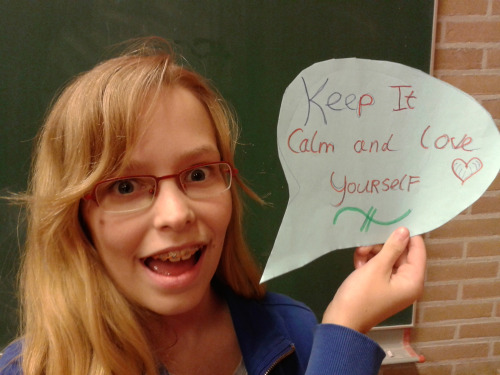 Keep It
Calm and love
Yourself